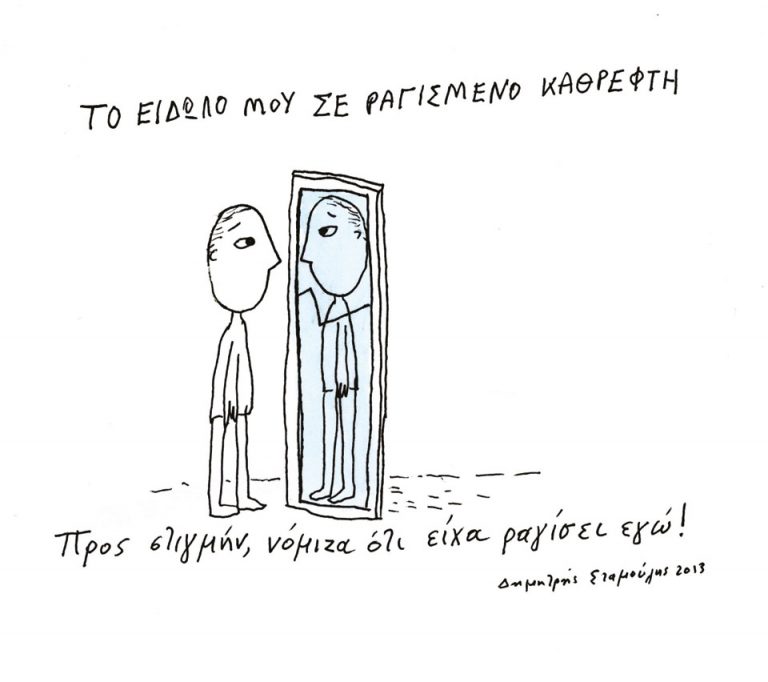 ΤΟ ΕΙΔΩΛΟ ΜΟΥ ΣΕ ΡΑΓΙΣΜΕΝΟ ΚΑΘΡΕΦΤΗ
Προς στιγμήν, νόμιζα ότι είχα ραγίσει εγώ!
Δημητρης Σταμούλης 2013